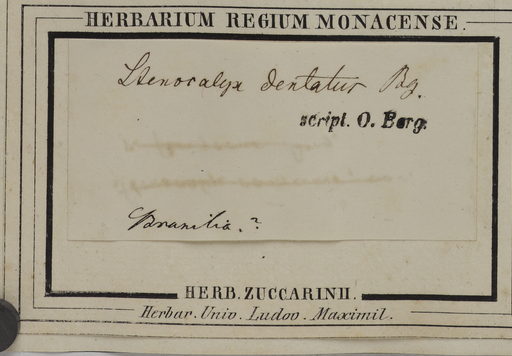 HERBARIUM REGIUM MONACENSE.
Stenocalyx dentatus Bg.
script. O. Berg.
Brasilia.?
HERB. ZUCCARINII.
Herbar. Univ. Ludov. Maximil.